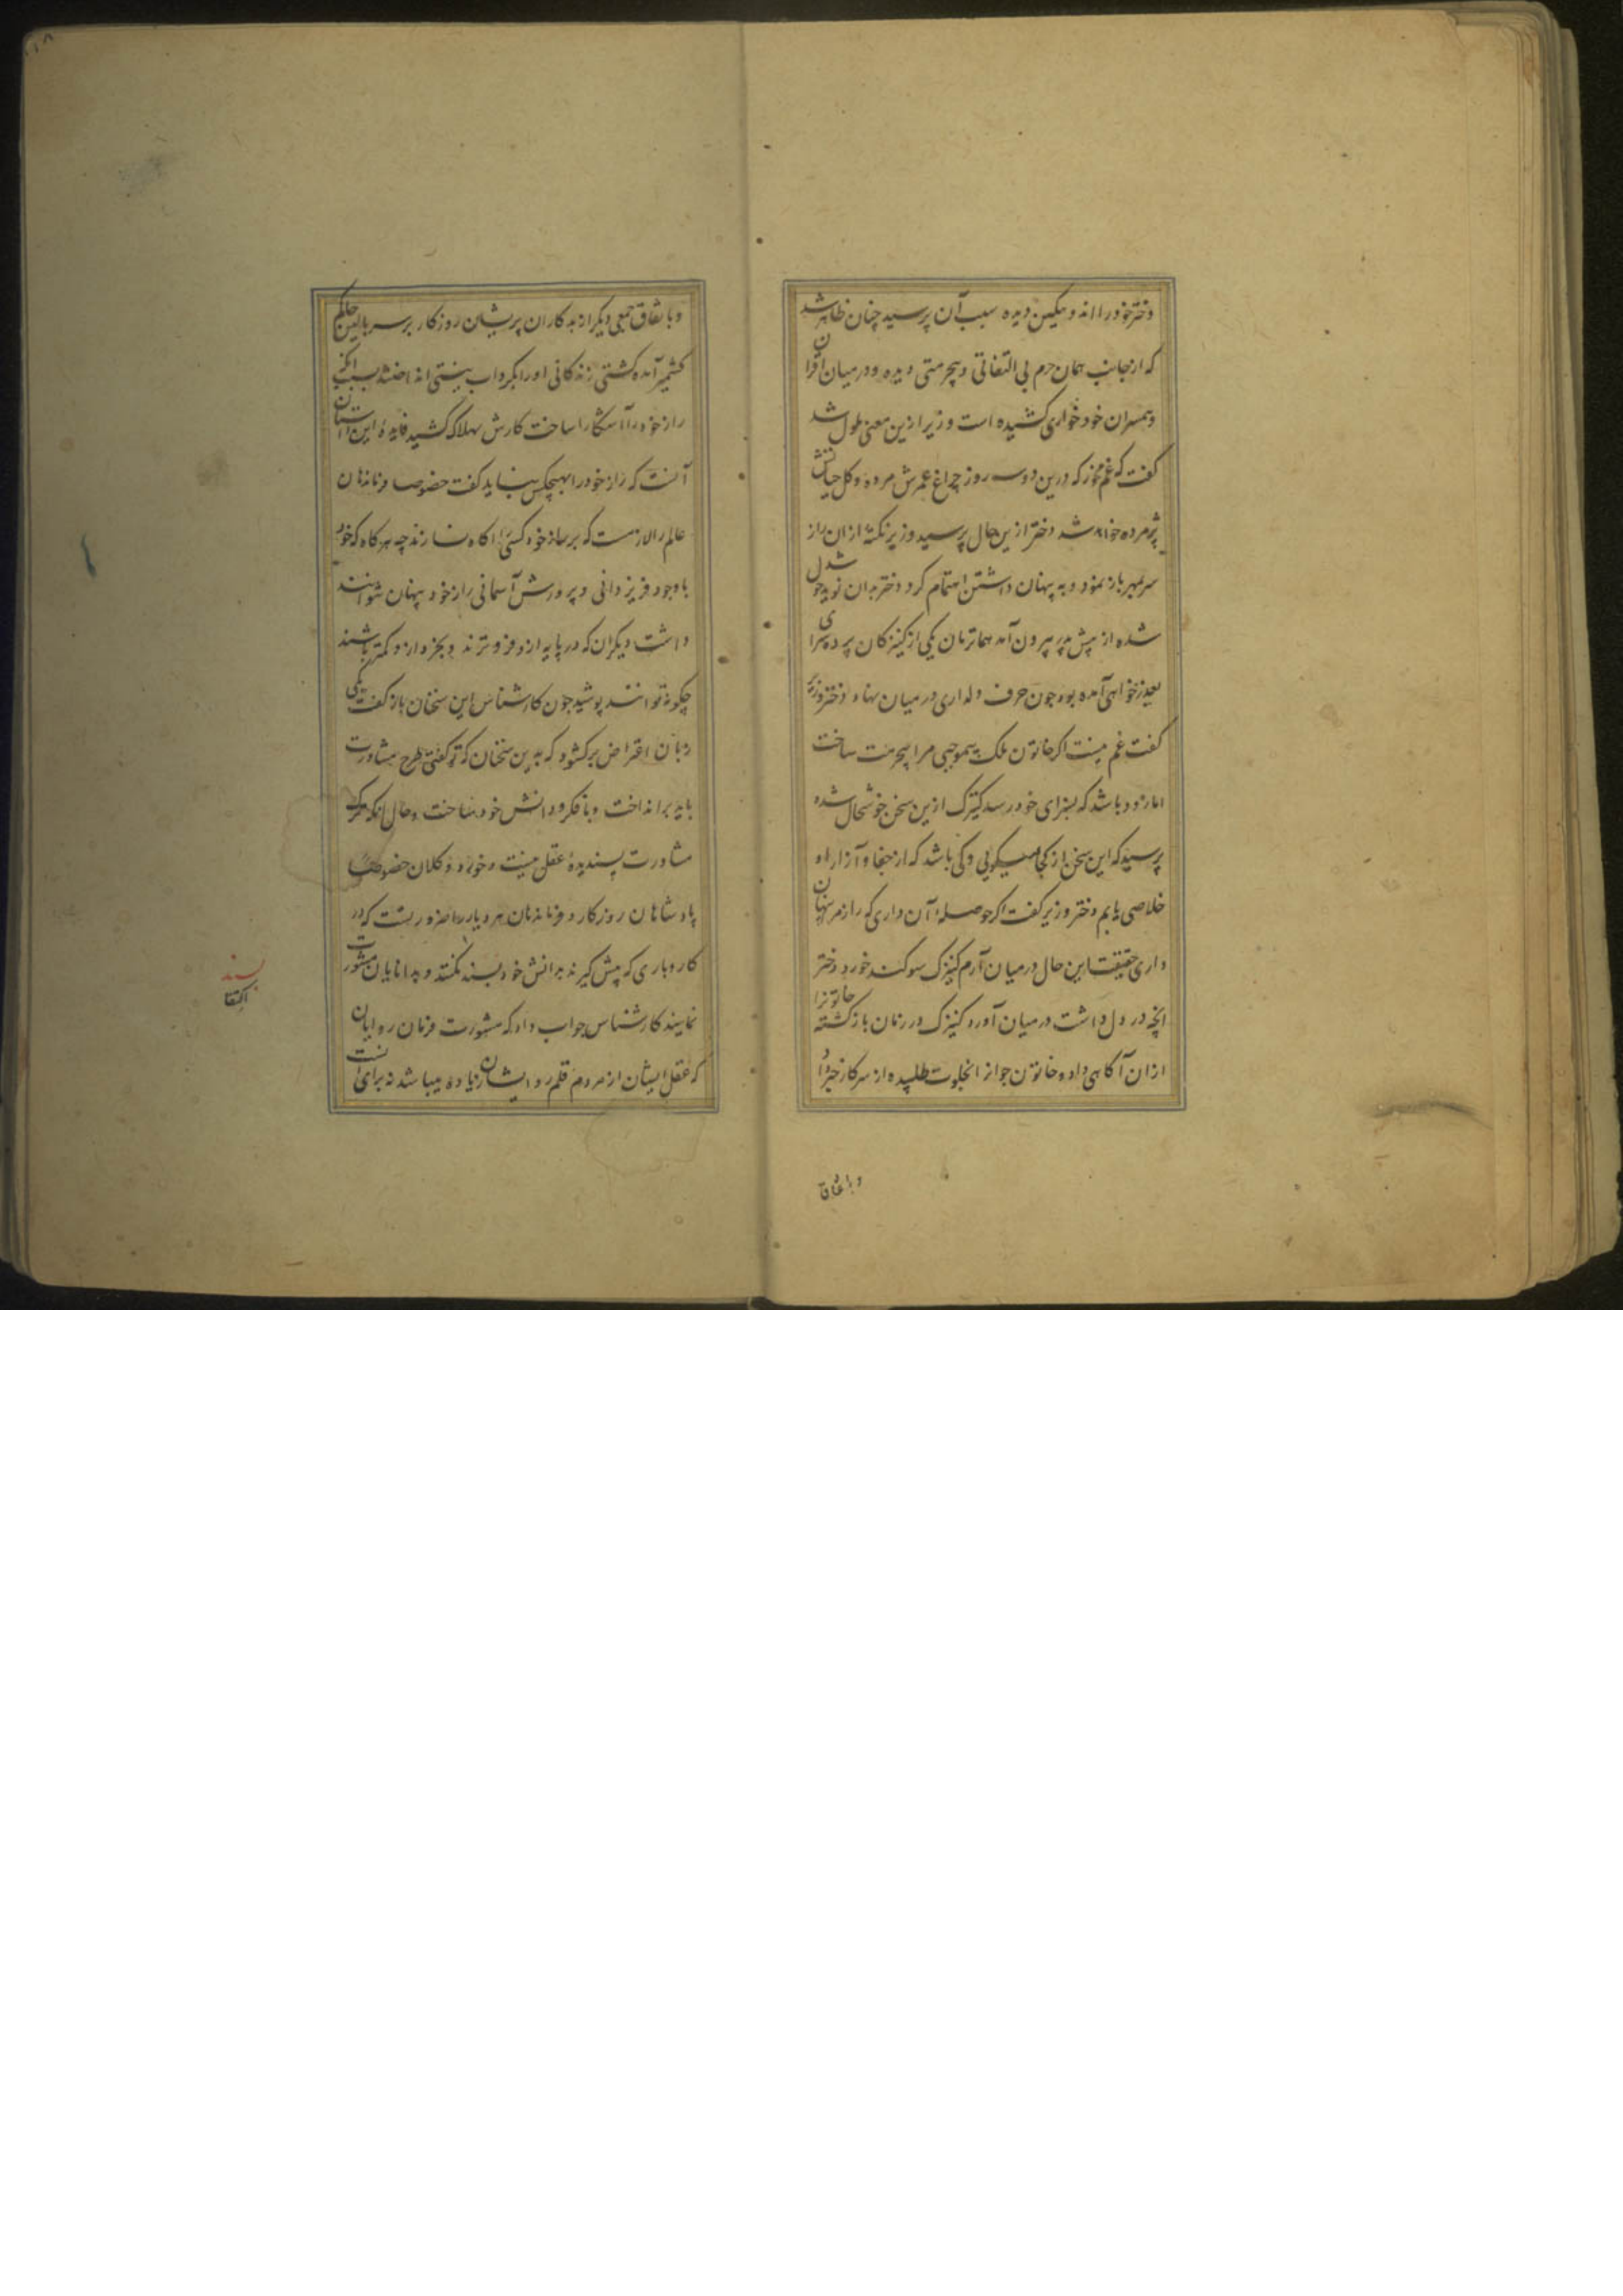 دختر خود را اندوهگین دیده سبب آن پرسید چنان ظاهر شد
که از جانب همان حرم بی التفاتی و بیحرمتی دیده و در میان اقران
و همسران خود خواری کشیده است وزیر ازین معنی ملول شد
گفت که غم مخور که درین دو سه روز چراغ عمرش مرده و کل حیاتش
پژمرده خواهد شد دختر ازین حال پرسید وزیر نکتهٔ از ان راز
سربمهر باز نمود و به پنهان داشتن اهتمام کرد دختر بدان نوید خوشدل
شده از پیش پدر بیرون آمد همانزمان یکی از کنیزکان پرده سرای
بعذرخواهی آمده بود چون حرف دلداری در میان نهاد دختر وزیر
گفت غم نیست اکر خاتون ملک بیموجبی مرا بیحرمت ساخت
اما زود باشد که بسزای خود رسد کنیزک ازین سخن خوشحال شده
پرسید که این سخن از کجا میگویی و کی باشد که از جفا و آزار او
خلاصی یابم دختر وزیر گفت اکر حوصلهٔ آن داری که راز مرا پنهان
داری حقیقت این حال در میان آرم کنیزک سوکند خورد دختر
انچه در دل داشت در میان آورد کنیزک در زمان باز کشته خاتونرا
ازان آکاهی داد و خاتون جوانرا بخلوت طلبیده از سر کار خبر داد
و باتفاق
و باتفاق جمعی دیکر از بدکاران پریشان روزکار بر سر بالین حاکم
کشمیر آمده کشتی زندکانی او را بکرداب نیستی انداختند بسبب انکه
راز خود را آشکارا ساخت کارش بهلاک کشید فایدهٔ این داستان
آنست که راز خود را بهیچکس نباید گفت خصوصا فرماندهان
عالم را لازمست که بر راز خود کسی را آکاه نسازند چه هرکاه که خود
باوجود فر یزدانی و پرورش آسمانی راز خود پنهان نتوانند
داشت دیکران که در پایه ازو فروترند و بخرد ازو کمتر باشند
چکونه توانند پوشید چون کارشناس این سخنان باز کفت یکی
زبان اعتراض برکشود که بدین سخنان که تو کفتی طرح مشاورت
باید برانداخت و با فکر و دانش خود ساخت و حال انکه ترک
مشاورت پسندیدهٔ عقل نیست و خورد و کلان خصوصا
پادشاهان روزکار و فرماندهان هر دیار را ضروریست که در
کار و باری که پیش کیرند بدانش خود بسند نکنند و بدانایان مشورت
نمایند کارشناس جواب داد که مشورت فرمان روایان
که عقل ایشان از مردم قلمرو ایشان زیاده میباشد نه برای آنست
بسند
اکتفا